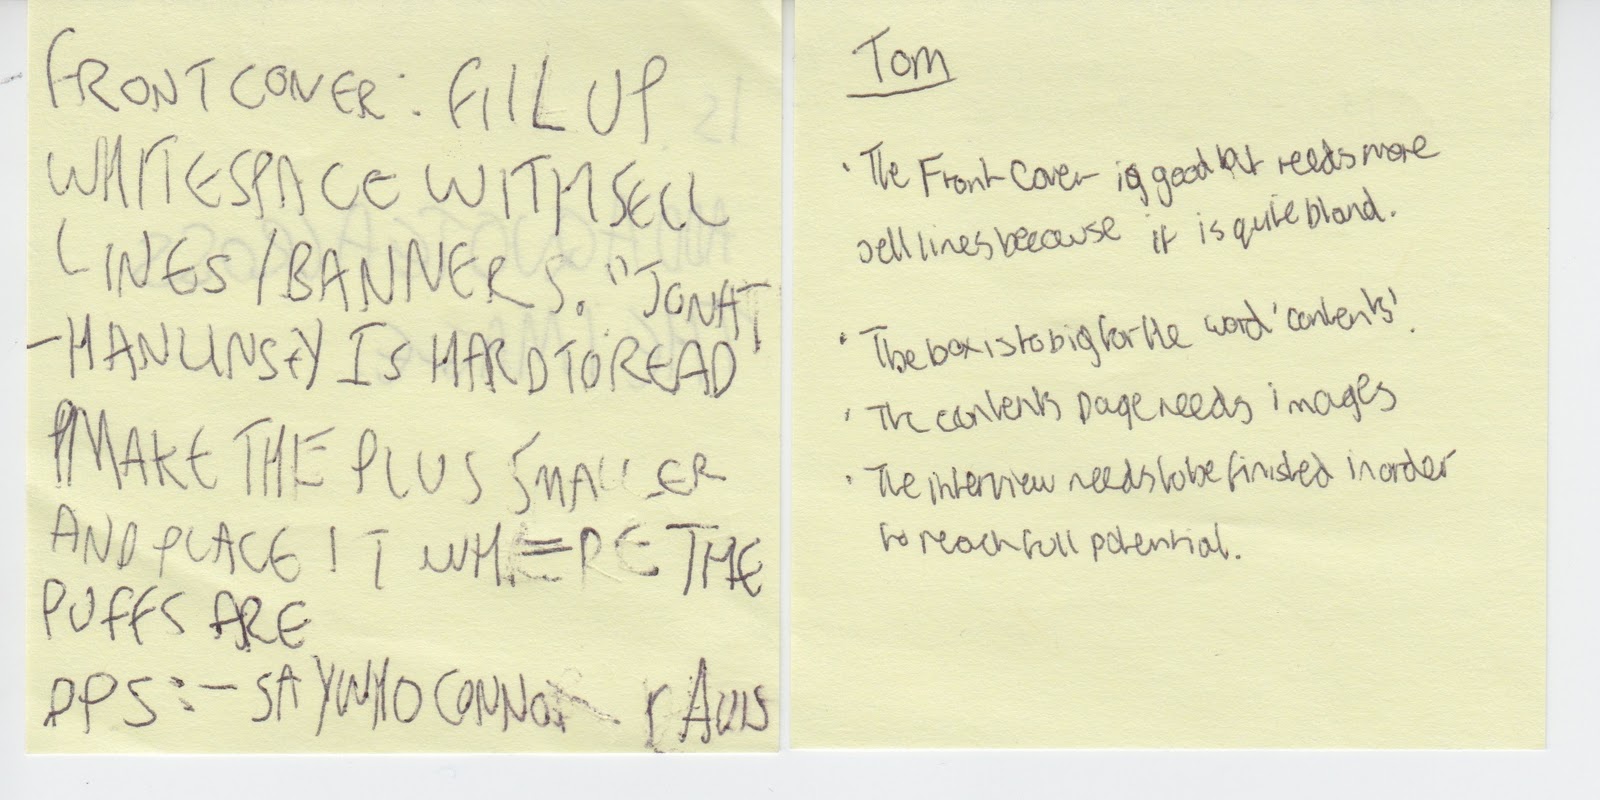 FRONT COVER: FILL UP
WHITESPACE WITH SELL
LINES/BANNERS. "JONAT
-HAN UNSEY IS HARD TO READ"
MAKE THE PLUS SMALLER
AND PLACE IT WHERE THE
PUFFS ARE
DPS:- SAY WHO CONNOR
Tom
· The Front Cover is good but needs more
sell lines because it is quite bland.
· The box is to big for the word 'contents'.
· The contents page needs images
· The interview needs to be finished in order
to reach full potential.